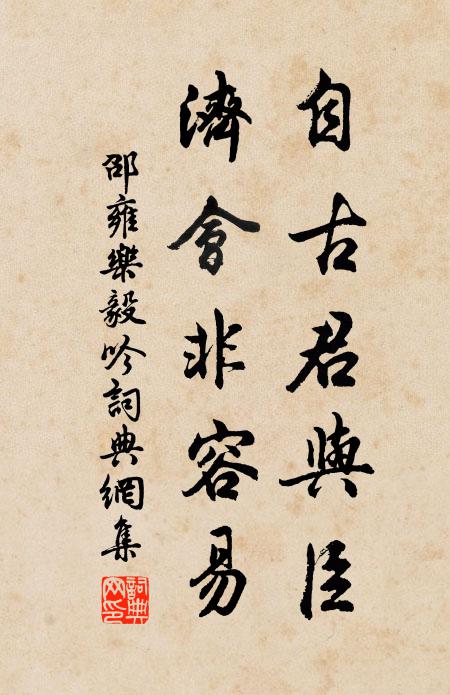 自古君與臣
濟會非容易
邵雍樂毅吟詞典網集
詞典網印